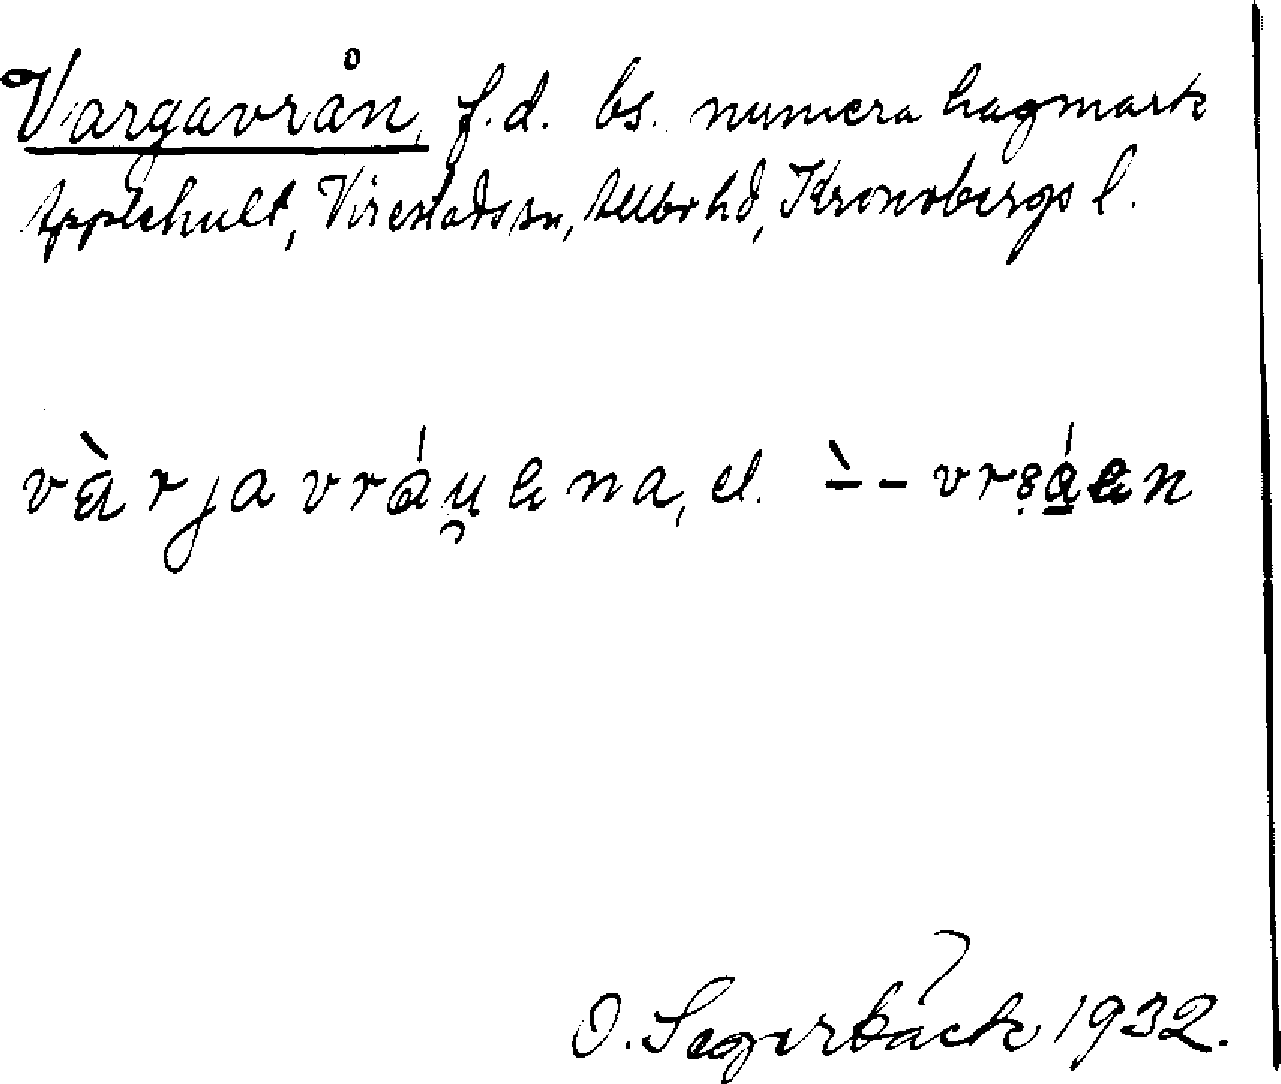 Vargavrån, f.d. bs. numera hagmark
Äpplehult, Virestads sn, Allbo hd, Kronobergs l.
vàrjavráu̯ena, el. ʹ-- vrs̩áen
O. Segerbäck 1932.